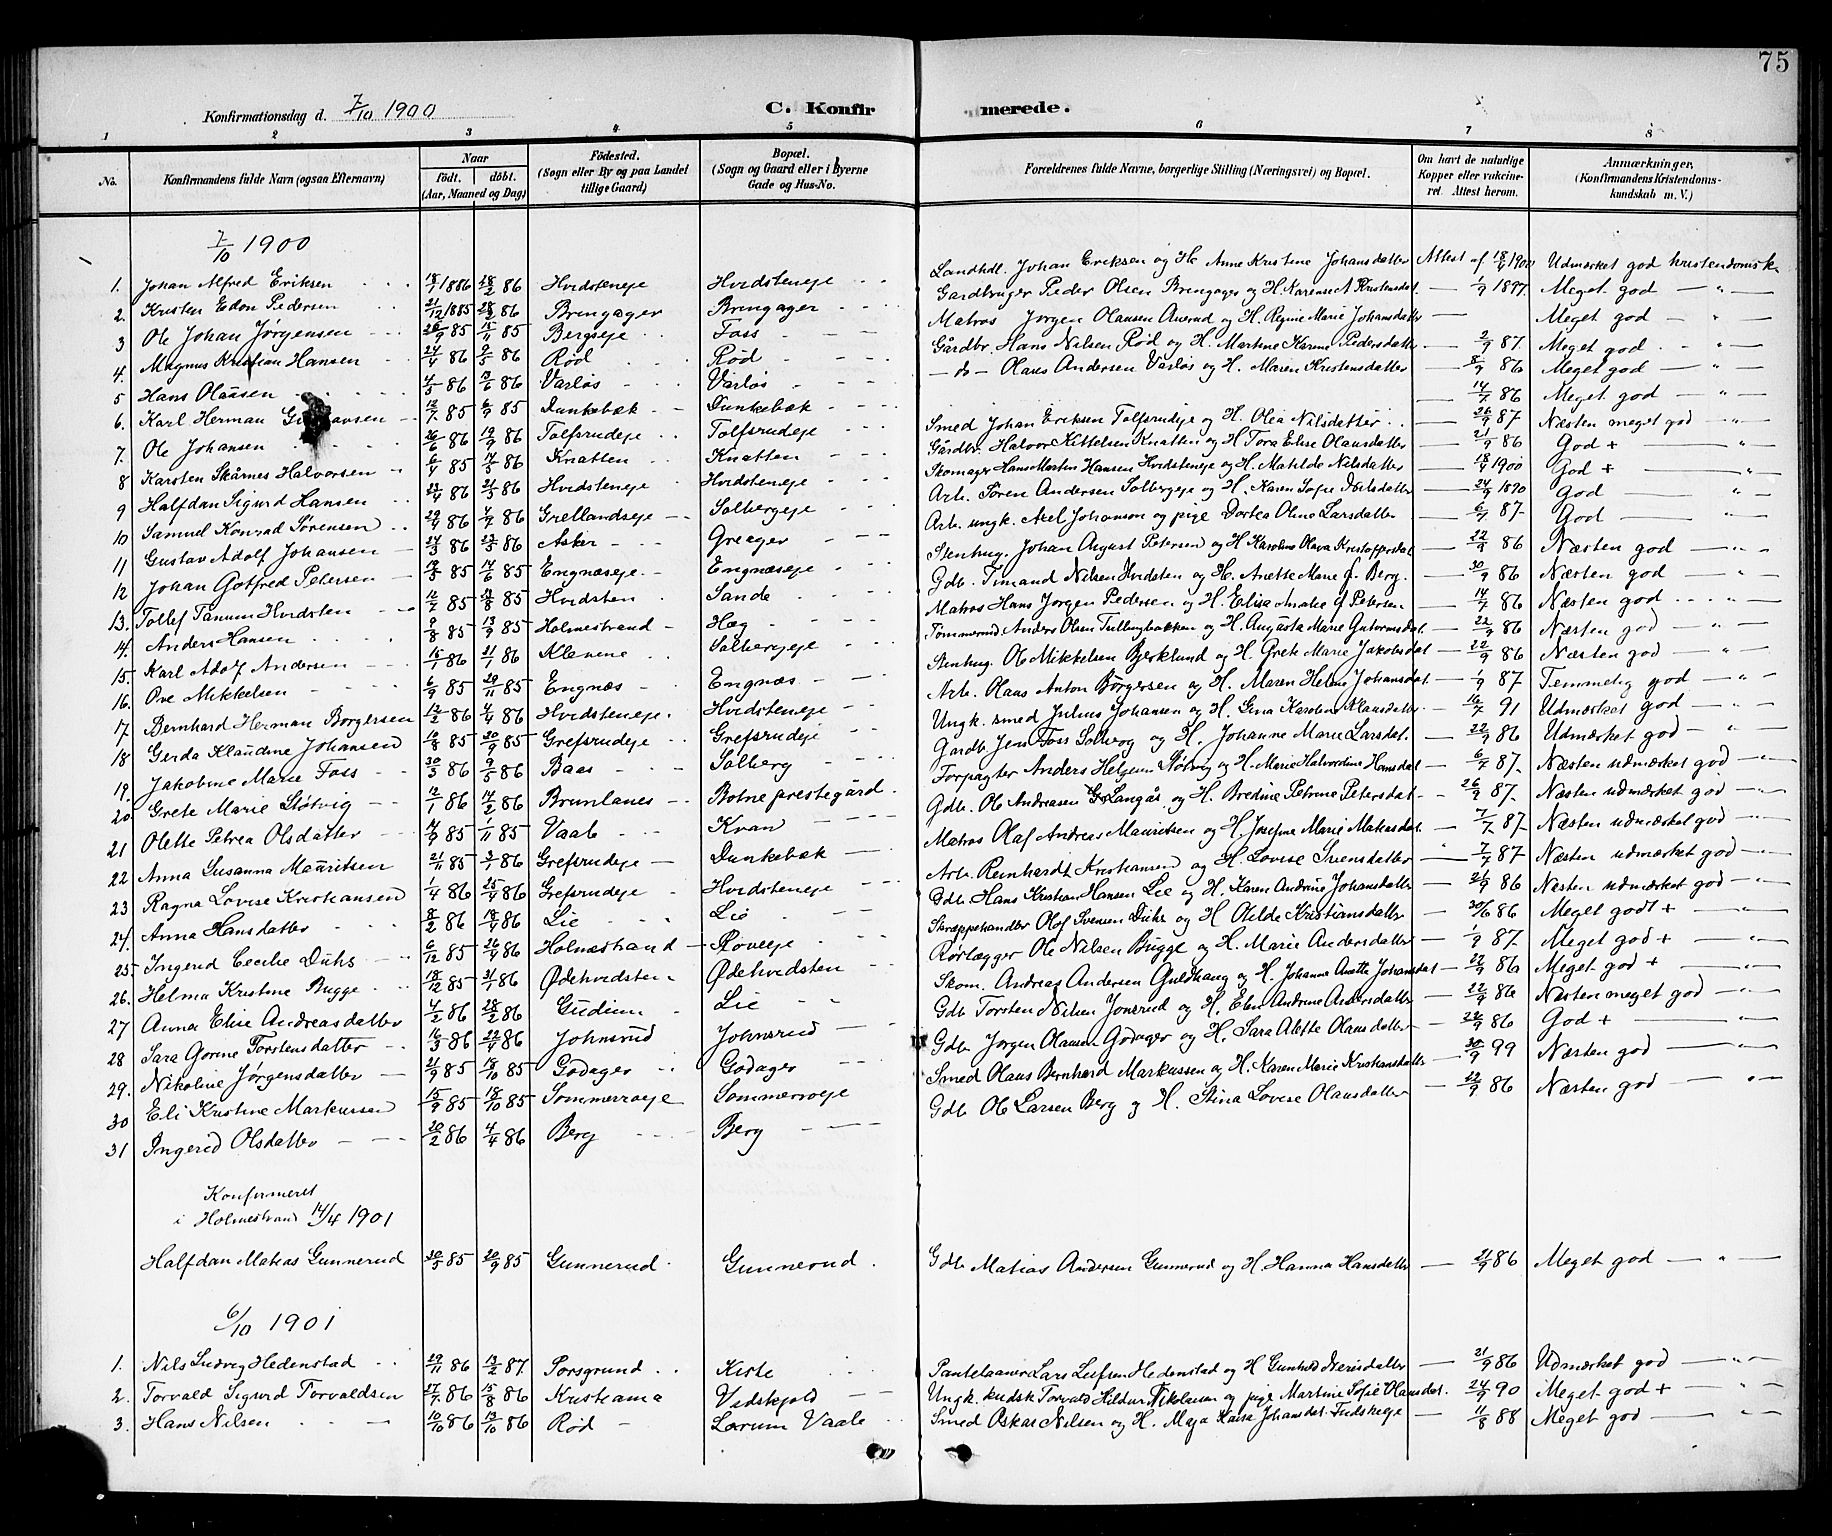 75
Konfirmationsdag d. 7/10 1900 C. Konfirmerede.
1 2 3 4 5 6 7 8
No. Konfirmandens fulde Navn (ogsaa Efternavn) Naar födt. döbt. (Aar, Maaned og Dag) Födested. (Sogn eller By og paa Landet tillige Gaard) Bopæl. (Sogn og Gaard eller i Byerne Gade og Hus-No. Forældrenes fulde Navne, borgerlige Stilling (Næringsvei) og Bopæl. Om havt de naturlige Kopper eller vakcineret. Attest herom. Anmærkninger, (Konfirmandens Kristendomskundskab m. V.)
7/10 1900
1. Johan Alfred Eriksen 18/1 1886 28/2 86 Hvidsteneje Hvidsteneje Landhdl. Johan Eriksen og H. Anne Kristine Johansdatter Attest af 18/9 1900 Udmærket god kristendomsk.
2. Kristen Edon Pedersen 21/12 1885 28/2 86 Bringager Bringager Gardbruger Peder Olsen Bringager og H. Karense A Kristensdat. 1/9 1897 Meget god
3 Ole Johan Jørgensen 26/9 85 15/11 85 Bergseje Foss Matros Jørgen Olausen Auerud og H. Regine Marie Johansdatter Meget god
4. Magnus Kristian Hansen 24/4 86 2/5 86 Rød Rød Gårdbr. Hans Nilsen Rød og H. Martine Karine Pedersdatter 2/9 87. Meget god
5 Hans Olausen 4/5 86 13/6 86 Varløs Varløs — do — Olaus Andersen Varløs og H. Maren Kristensdatter 8/9 86 Meget god
6. Karl Herman 12/7 85 6/9 85 Dunkebæk Dunkebæk 14/7 86 Meget god
7. Ole Johansen 26/6 86 19/9 86 Tolfsrudeje Tolfsrudeje Smed Johan Eriksen Tolfsrudeje og H. Olea Nilsdatter 26/9 87 Næsten meget god
8 Karsten Skårnes Halvorsen 6/4 85 17/5 86 Knatten Knatten Gårdbr. Halvor Kittelsen Knatten og H Tora Elise Olausdatter 21/9 86 God +
9 Halfdan Sigurd Hansen 22/4 86 21/5 86 Hvidsteneje Hvidsteneje Skomager Hans Martin Hansen Hvidsteneje og H. Matilde Nilsdatter 18/9 1900 God +
10 Samuel Konrad Sørensen 29/4 86 4/7 86 Grellandseje Solbergeje Arb. Søren Andersen Solbergeje og H. Karen Sofie Nilsdatter 24/9 1890 God
11 Gustav Adolf Johansen 24/3 86 23/5 86 Asker Greager Arb. ungk. Axel Johanson og pige Dortea Oline Larsdatter 6/7 87 God
12 Johan Gotfred Petersen 19/3 85 14/6 85 Engnæseje Engnæseje Stenhug. Johan August Petersen og H Karoline Olava Kristoffersdat 22/9 86 Næsten god
13. Tollef Tanum Hvidsten 12/7 85 23/8 85 Hvidsten Sande Gdb. Timand Nilsen Hvidsten og H. Anette Marie f. Berg. 30/9 86 Næsten god
14. Anders Hansen 9/8 85 13/9 85 Holmestrand Hæg Matros Hans Jørgen Pedersen og H. Elisa Amalie f Petersen 14/7 86 Næsten god
15. Karl Adolf Andersen 15/1 86 21/1 86 Klevene Solbergeje Tømmermd Anders Olsen Tullingbakken og H. Augusta Marie Gutormsdat 22/9 86 Næsten god
16. Ove Mikkelsen 6/9 85 29/11 85 Engnæs Engnæs Stenhug. Ole Mikkelsen Bjerklund og H. Grete Marie Jakobsdat 22/9 86 Næsten god
17. Bernhard Herman Borgersen 12/2 86 4/4 86 Hvidsteneje Hvidsteneje Arb. Olaus Anton Börgersen og H. Maren Helene Johansdat. 1/9 87. Temmelig god
18 Gerda Klaudine Johansen 10/8 85 20/9 85 Grefsrudeje Grefsrudeje Ungk. smed Julius Johansen og H. Gina Karoline Klausdatter 16/7 91 Udmærket god
19. Jakobine Marie Foss 30/3 86 9/5 86 Baas Solberg Gardb. Jens Foss Solberg og H. Johanne Marie Larsdat. 22/9 86 Udmærket god
20 Grete Marie Støtvig 12/1 86 14/2 86 Brunlanes Botne prestegård Forpagter Anders Helgesen Støtvig og H. Marie Halvordine Hansdat 6/7 87. Næsten udmærket god
21 Olette Petrea Olsdatter 4/9 85 1/11 85 Vaale Kvan Gdb. Ole Andreasen Langås og H. Bredine Petrine Petersdat 26/9 87. Næsten udmærket god
22 Anna Susanna Mauritsen 21/11 85 3/1 86 Grefsrudeje Dunkebæk Matros Olaf Andreas Mauritsen og H. Josefine Marie Matiasdat 7/7 87 Næsten udmærket god
23 Ragna Lovise Kristiansen 1/4 86 25/4 86 Grefsrudeje Hvidsteneje Arb. Reinhardt Kristiansen og H. Lovise Svensdatter 7/7 87 Næsten udmærket god
24. Anna Hansdatter 8/2 86 18/4 86 Lie Lie Gdb. Hans Kristian Hansen Lie og H. Karen Andrine Johansdatter 21/9 86 Næsten udmærket god
25 Ingerid Cecilie Duhs 6/12 85 26/4 86 Holmestrand Roveeje Skræppehandler Olof Svensen Duhs og H Hilde Kristiansdatter 30/6 86 Meget godt +
26. Helma Kristine Bugge 18/12 85 31/1 86 Ødehvidsten Ødehvidsten Rørlægger Ole Nilsen Bugge og H. Marie Andersdatter 1/9 87. Meget god +
27 Anna Elise Andreasdatter 4/2 86 28/2 86 Gudium Lie Skom. Andreas Andersen Guldhaug og H. Johanne Anette Johansdat 22/9 86 Meget god +
28 Sara Gorine Torstensdatter 16/3 86 22/4 86 Johnsrud Johnsrud Gdb Torsten Nilsen Jonsrud og H. Elen Andrine Andersdatter 22/9 86 Næsten meget god
29. Nikoline Jørgensdatter 21/9 85 18/10 85 Godager Godager Gdb Jørgen Olausen Godager og H. Sara Alette Olausdatter 22/9 86 God +
30 Eli Kristine Markussen 15/9 85 18/10 85 Sommerroeje Sommerroeje Smed Olaus Bernhard Markussen og H. Karen Marie Kristiansdatter 30/9 99 Næsten god
31 Ingerid Olsdatter 20/2 86 4/4 86 Berg Berg Gdb Ole Larsen Berg og H. Stina Lovise Olausdatter 22/9 86 Næsten god
Konfirmeret
i Holmestrand 14/4 1901
Halfdan Matias Gunnerud 30/5 85 20/9 85 Gunnerud Gunnerud Gdb Matias Andersen Gunnerud og H. Hanna Hansdatter 21/9 86 Meget god
6/10 1901
1. Nils Ludvig Hedenstad 29/11 86 13/2 87 Porsgrund Kirke Panteլaaner Lars Leifsen Hedenstad og H Gunhild Iversdatter 21/9 86 Udmærket god
2. Torvald Sigurd Torvaldsen 27/7 86 15/8 86 Kristiania Vidskjold Ungk. kudsk Torvald Hildur Nikolaisen og pige Martine Sofie Olausdat. 24/9 90 Meget god +
3. Hans Nilsen 10/10 86 12/10 86 Rød Lærum Vaale Smed Oskar Nilsen og H. Maja Kaisa Johansdat. Fudskeeje 11/8 88 Meget god